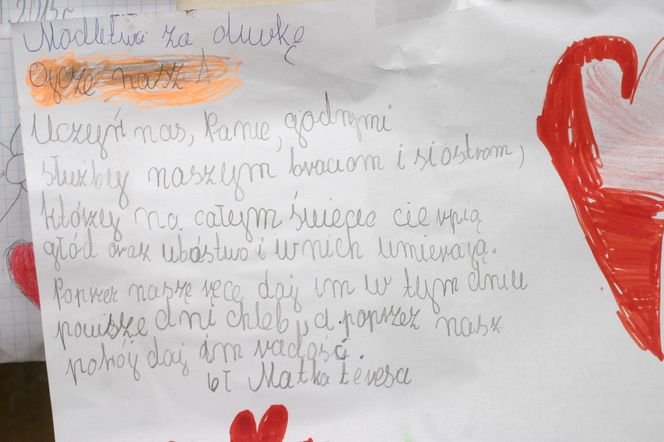 2015r
Modlitwa za diwkę
Ojcze nasz!
Uczyń nas, Panie, godnymi
służby naszym braciom i siostrom,
którzy na całym świecie cierpią
głód oraz ubóstwo i w nich umierają.
Poprzez nasze ręce daj im w tym dniu
powszedni chleb, a poprzez nasz
pokój daj im radość.
bł Matka Teresa